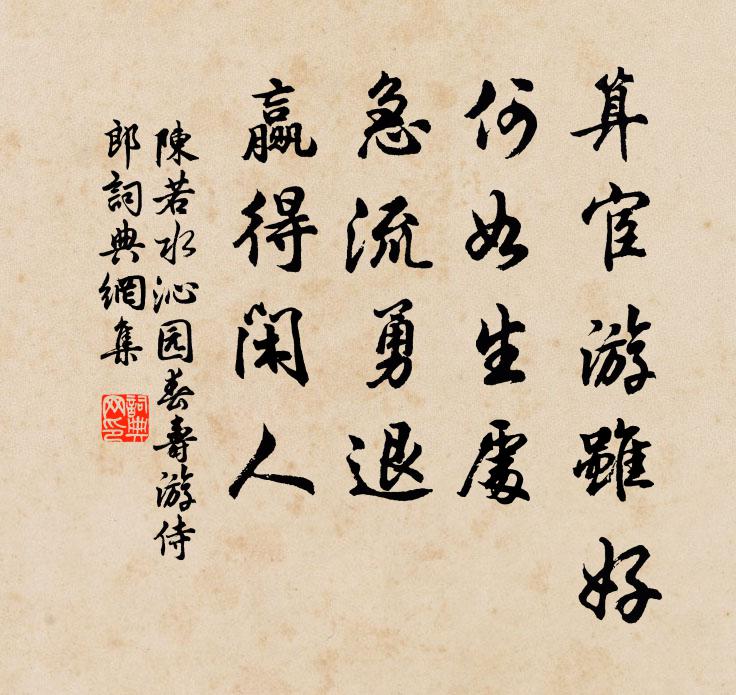 算宦游雖好
何如生處
急流勇退
贏得閑人
陳若水沁园春壽游侍
郎詞典網集
詞典
网印